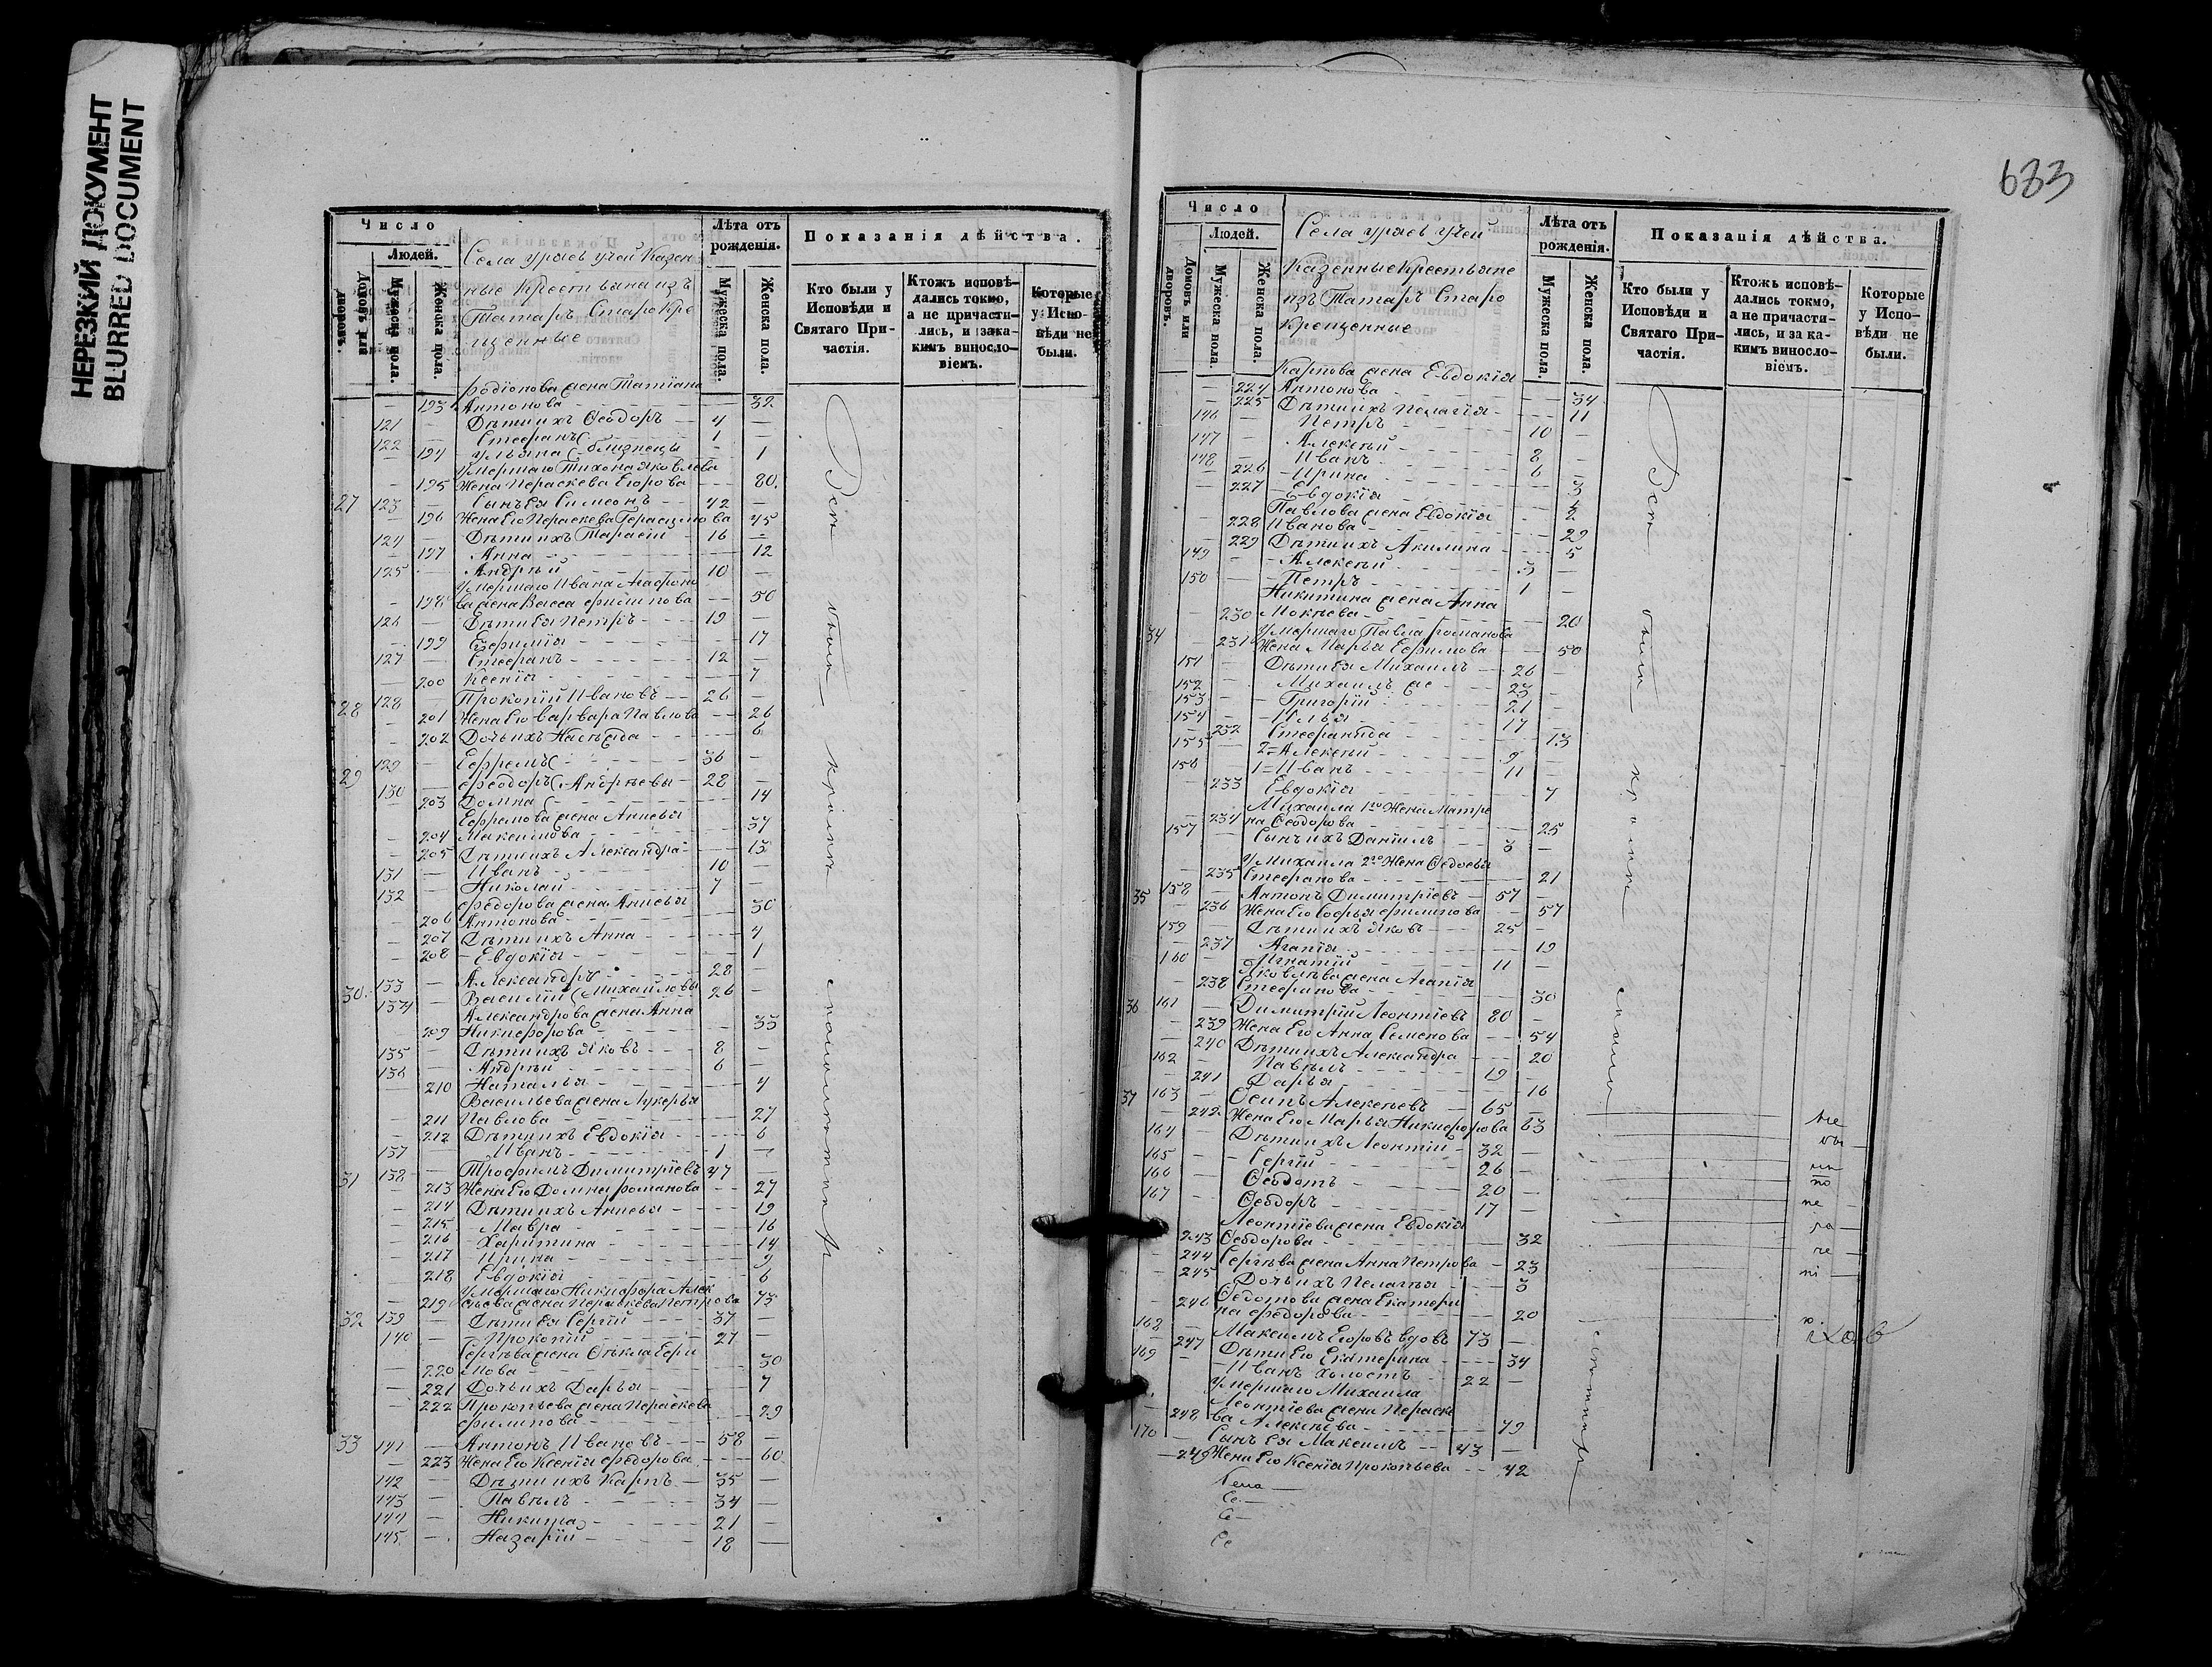 НЕРЕЗКИЙ ДОКУМЕНТ
BLURRED DOCUMENT
Число
Людей.
Домовъ или дворовъ.
Мужеска пола.
Женска пола.
Села Уряев Учей Казен
ные Крестьяна изъ
Татаръ Старокре
щенные
Лѣта отъ рожденія.
Мужеска пола.
Женска пола.
Показанія дѣйства.
Кто были у Исповѣди и Святаго Причастія.
Ктожъ исповѣдались токмо, а не причастились, и за какимъ винословіемъ.
Которые у Исповѣди не были.
Родіонова жена Татіана
193 Антонова 32
121 Дѣти ихъ Ѳеодоръ 4
122 Стефанъ 1
194 Ульяна близнецы 1
Умершаго Тихона Яковлева
195 Жена Параскева Егорова 80.
27 123 Сынъ Ея Симеонъ 42
196 Жена Его Параскева Герасимова 45
124 Дѣти ихъ Тарасій 16
197 Анна 12
125 Андрѣй 10
Умершаго Ивана Агафоно
198 ва жена Васса Филипова 50
126 Дѣти Ея Петръ 19
199 Ефимія 17
127 Стефанъ 12
200 Ксенія 7
28 128 Прокопій Ивановъ 26
201 Жена Его Варвара Павлова 26
202 Дочь ихъ 6
29 129 Ефремъ 36
130 Феодоръ Андрѣевы 28
203 Домна 14
Ефремова жена Анисья
204 Максимова 37
205 Дѣти ихъ Александра 13
131 Иванъ 10
132 Николай 7
Федорова жена Анисья
206 Антонова 30
207 Дѣти ихъ Анна 4
208 Евдокія 1
30. 133 Александръ 28
134 Василій Михайловы 26
Александрова жена Анна
209 Никифорова 33
135 Дѣти ихъ Яковъ 8
136 Андрѣй 6
210 Наталья 4
Васильева жена Лукерья
211 Павлова 27
212 Дѣти ихъ Евдокія 6
137 Иванъ 1
31 138 Трофимъ Димитріевъ 47
213 Жена Его Домна Романова 27
214 Дѣти ихъ Анисья 19
215 Мавра 16
216 Харитина 14
217 Ирина 9
218 Евдокія 6
Умершаго Никифора Алек
219 сѣева жена Параскева Петрова 73
32 139 Дѣти Ея Сергій 37
140 Прокопій 27
Сергѣева жена Ѳекла Ефи
220 мова 30
221 Дочь ихъ Дарья 7
222 Прокопьева жена Параскева
Филипова 29
33 141 Антонъ Ивановъ 58
223 Жена Его Ксенія Федорова 60
142 Дѣти ихъ Карпъ 35
143 Павелъ 34
144 Никита 21
145 Назарій 18
Всѣ были
683
Число
Людей.
Домовъ или дворовъ.
Мужеска пола.
Женска пола.
Села Уряев Учей
Казенные Крестьяне
изъ Татаръ Старо
Крещенные
Лѣта отъ рожденія.
Мужеска пола.
Женска пола.
Показанія дѣйства.
Кто были у Исповѣди и Святаго Причастія.
Ктожъ исповѣдались токмо, а не причастились, и за какимъ винословіемъ.
Которые у Исповѣди не были.
Карпова жена Евдокія
224 Антонова 34
225 Дѣти ихъ Пелагія 11
146 Петръ 10
147 Алексѣй 8
148 Иванъ 6
226 Ирина 3
227 Евдокія 2
Павлова жена Евдокія
228 Иванова 29
229 Дѣти ихъ Акилина 5
149 Алексѣй 3
150 Петръ 1
Никитина жена Анна
230 Мокѣева 20
34 Умершаго Павла Романова
231 Жена Марья Ефимова 50
151 Дѣти Ея Михаилъ 26
152 Михаилъ же 23
153 Григорій 21
154 Илья 17
232 Стефанида 13
155 2=Алексѣй 9
156 1=Иванъ 11
233 Евдокія 7
Михаила 1го Жена Матре
234 на Ѳеодорова 25
157 Сынъ ихъ Даніилъ 3
У Михаила 2го Жена Ѳедосья
235 Стефанова 21
35 158 Антонъ Димитріевъ 57
236 Жена Его Софья Филипова 57
159 Дѣти ихъ Яковъ 25
237 Агапія 19
160 Игнатій 11
Яковлѣва жена Агапія
238 Стефанова 30
36 161 Димитрій Леонтіевъ 80
239 Жена Его Анна Семенова 54
240 Дѣти ихъ Александра 20
162 Павелъ 19
241 Дарья 16
37 163 Осипъ Алексѣевъ 65
242 Жена Его Марья Никифорова 63
164 Дѣти ихъ Леонтій 32
165 Сергій 26
166 Ѳеодотъ 20
167 Ѳеодоръ 17
Леонтіева жена Евдокія
243 Ѳеодорова 32
244 Сергѣева жена Анна Петрова 23
245 Дочь ихъ Пелагея 3
Ѳедотова жена Екатери
246 на Федорова 20
168 Максимъ Егоровъ вдовъ 73
247 Дѣти Его Екатерина 34
169 Иванъ холостъ 22
Умершаго Михаила
Леонтіева жена Параске
248 ва Алексѣева 79
170 Сынъ Ея Максимъ 43
249 Жена Его Ксенія Прокопьева 42
Всѣ были